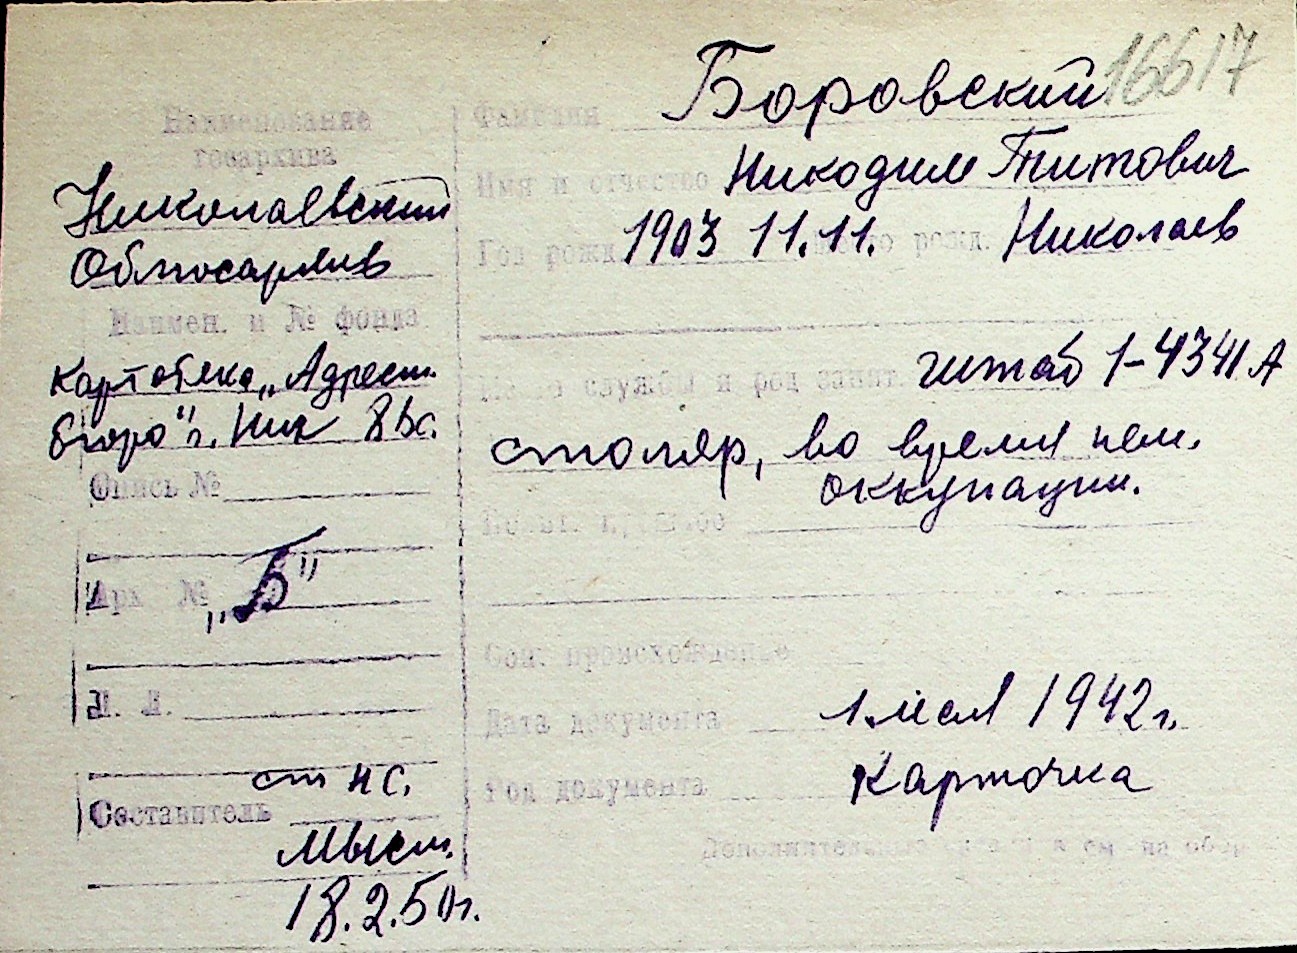 16617
Наименование
госархива
Николаевский
Облгосархив
Наимен. и № фонда
Картотека „Адресн.
бюро" г. Ник
Опись №
Арх №
„Б"
Л. Л.
ст НС.
Составитель
18.2.50г.
Фамилия Боровский
Имя и отчество Никодим Титович
Год рожд. 1903 11.11. Место рожд. Николаев
Место службы и род занят. штаб 1-4341 А
столяр, во время нем.
оккупации.
Соц. происхождение
Дата документа 1942г.
Род документа Карточка
Дополнительные см на обор